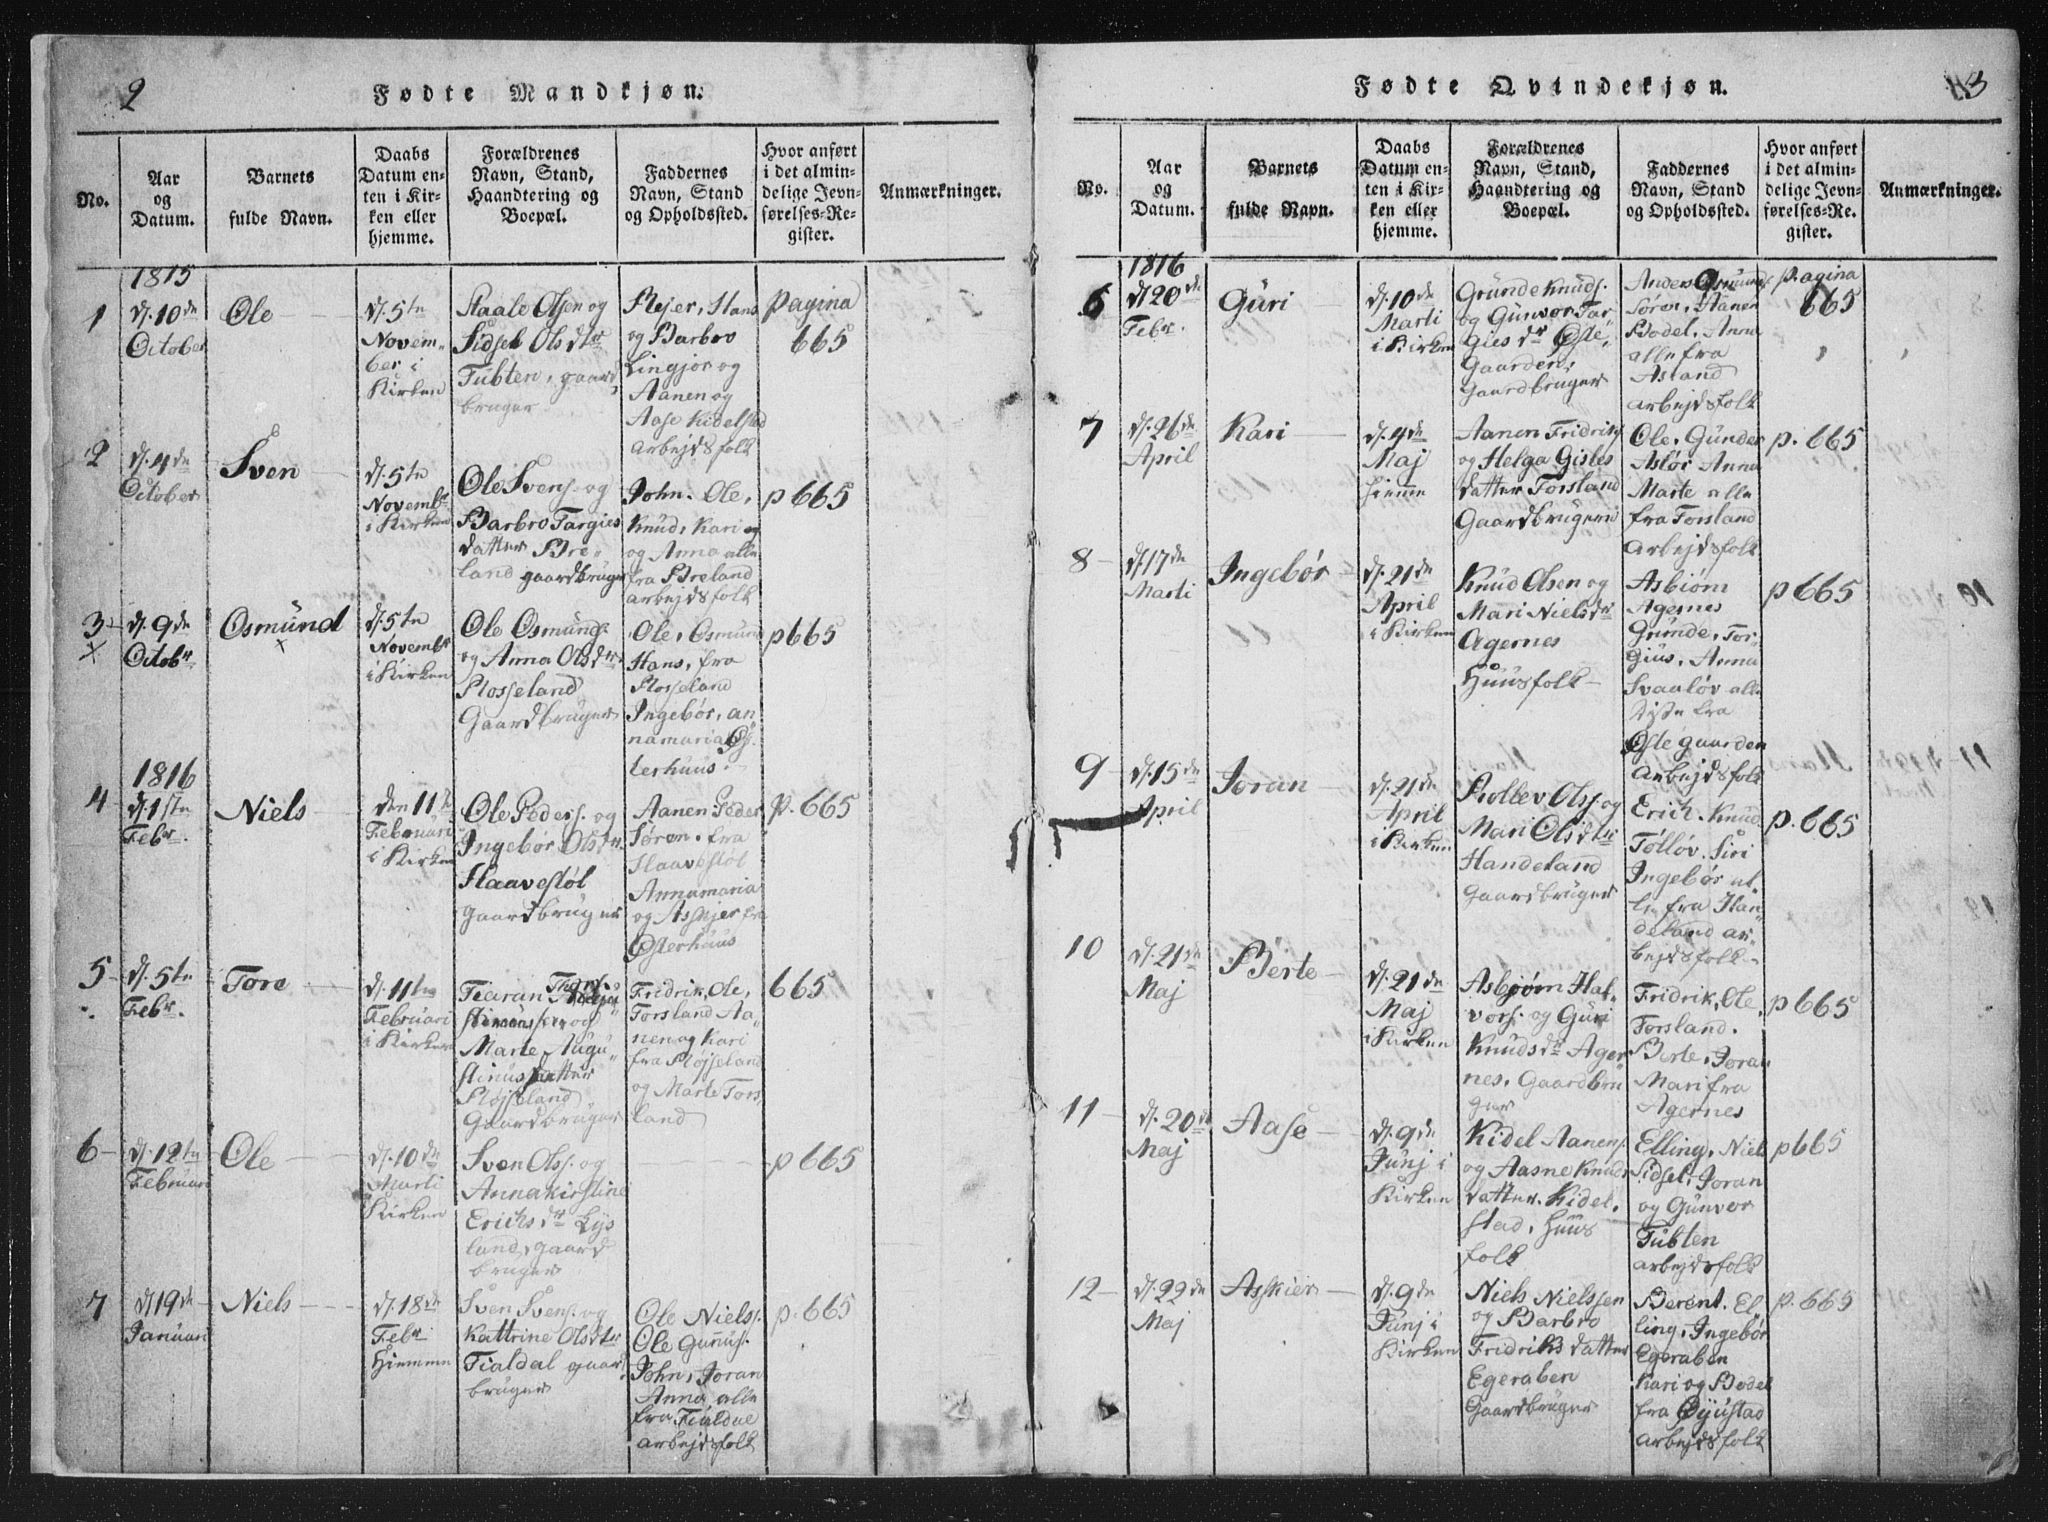 2
Fødte Mandkjøn.
No.
Aar
og
Datum.
Barnets
fulde Navn.
Daabs
Datum en-
ten i Kir-
ken eller
hjemme.
Forældrenes
Navn, Stand,
Haandtering og
Boepæl.
Faddernes
Navn, Stand
og Opholdssted.
Hvor anført
i det almin-
delige Jevn-
førelses-Re-
gister.
Anmærkninger.
1815
1
d. 10de
October
Ole
d. 5te
Novem-
ber i
Kirken
Staale Olsen og
Sidsel Olsdtr
Tübten, gaard
brüger
Rejer, Hans
og Barbro
Lingjor og
Aanen og
Aase Kidelstad
arbejdsfolk
pagina
665
2
d. 4de
October
Sven
d. 5te
Novembr
i Kirken
Ole Svens. og
Barbro Targies
datter Bre-
land gaardbrüger
John, Ole,
Knud, Kari og
og Anna alle
fra Breland
arbejdsfolk
p 665
3
x
d. 9de
Octobr.
Osmünd
x
d. 5te
Novembr
i Kirken
Ole Osmunds.
og Anna Olsdtr.
Rosseland
Gaardbrüger
Ole, Osmund
Hans, fra
Rosseland
Ingebör, an-
namaria Øs-
terhuus.
p 665
1816
4
d. 1ste
Febr.
Niels
den 11te
Februari
i Kirken
Ole Peders. og
Ingebör Olsdtr.
Haavestöl
Gaardbrüger
Aanen Peder
Sören, fra
Haavestöl
Annamaria
og Asskjer fra
Østerhuus
p. 665
5
d. 5te
Febr.
Tore
d. 11te
Februari
i Kirken
Tiaran
og
Marte Augu-
stinusdatter
Röjseland
Gaardbrüger
Fridrik, Ole,
Torsland Aa-
nen og Kari
fra Röjseland
og Marte Tors
land
665
6
d. 12te
Februari
Ole
d. 10de
Marti
Kirken
Sven Olss. og
Annakirstine
Erichsdr Lys
land, gaard
brüger
p 665
7
d. 19de
Januari
Niels
d. 18de
Febr.
Hiemme
Sven Svens. og
Kattrine Olsdtr
Fialdal gaard
brüger
Ole Niels.
Ole Gunus.
John, Joran
Anna, alle
fra Fialdal
arbejdsfolk
p. 665
3
Fødte Qvindekjøn.
No.
Aar
og
Datum.
Barnets
fulde Navn.
Daabs
Datum en-
ten i Kir-
ken eller
hjemme.
Forældrenes
Navn, Stand,
Haandtering og
Boepæl.
Faddernes
Navn, Stand
og Opholdssted.
Hvor anført
i det almin-
delige Jevn-
førelses-Re-
gister.
Anmærkninger.
1816
6
d. 20de
Febr.
Güri
d. 10de
Marti
i Kirken
Gründe Knuds.
og Günvor Tar-
gies dr Øste-
Gaarden,
Gaardbrüger
Anders Osmünds
Sören, Aanen
Bodel, Anna
alle fra
Asland
arbejdsfolk
pagina
665
7
d. 26de
April
Kari
d. 4de
Maj
hiemme
Aanen Fridriks
og Helga Gisles
datter Forsland
Gaardbrügeri
Ole, Günder
Aslör Anna
Marte alle
fra Torsland
arbejdsfolk
p. 665
8
d. 17de
Marti
Ingebör
d. 21de
April
i Kirken
Knud Olsen og
Mari Nielsdr
Agernes
Huusfolk
Asbiörn
Agernes
Gründe, Tor
gius, Anna
Svaalöv alle
disse fra
Østegaarden
arbejdsfolk
p 665
9
d. 15de
April
Joran
d. 21de
April
i Kirken
Rollev Olss. og
Mari Olsdtr
Handeland
Gaardbrüger
Erich, Knud
Töllöv, Siri
Ingebör al-
le fra Han-
deland ar-
bejdsfolk
p. 665
10
d. 21de
Maj
Berte
d. 21de
Maj
i Kirken
Asbjörn Hal-
vors. og Güri
Knudsdr Ager
nes, Gaardbrü
ger
Fridrik, Ole
Torsland.
Berte, Joran
Mari fra
Agernes
p 665
11
d. 20de
Maj
Aase
d. 9de
Junj i
Kirken
Kidel Aanens.
og Aasne Knuds
datter, Kidel-
stad, Huus
folk
Elling, Niels
Sidsel, Joran
og Günvor
Tübten
arbejdsfolk
p 665
12
d. 22de
Maj
Asskier
d. 9de
Junj i
Kirken
Niels Nielssen
og Barbro
Fridriksdatter
Egeraben
Gaardbrüger
Berent, El
ling, Ingebör
Egeraben
Kari og Bodel
fra Øyüstad
arbejdsfolk
p. 665